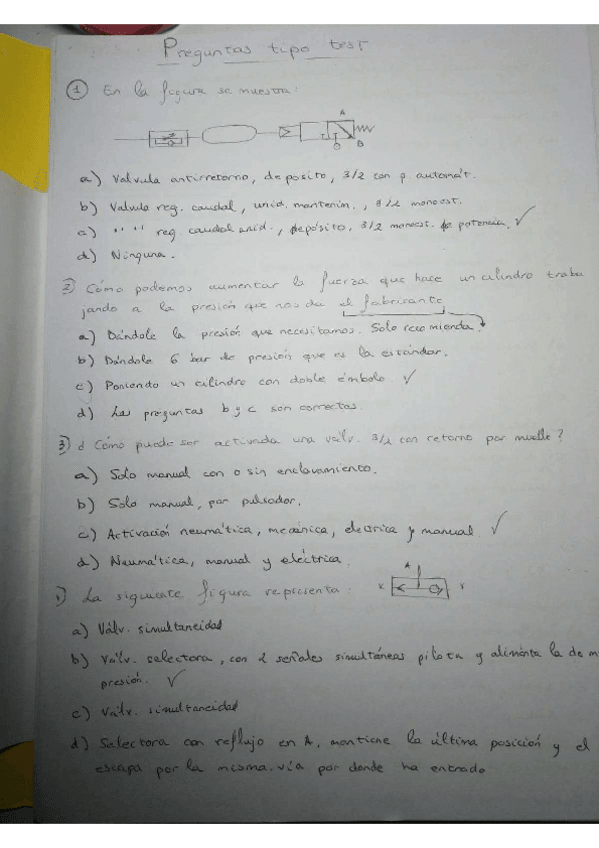 Preguntas tipo test
① En la figura se muestra:
A
O B
a) Valvula antirretorno, deposito, 3/2 con p. automát.
b) Valvula reg. caudal, unid. mantenin., 3/2 monoest.
c) " " reg. caudal unid., depósito, 3/2 monoest. de potencia. ✓
d) Ninguna.
2) Cómo podemos aumentar la fuerza que hace un cilindro traba
jando a la presión que nos da el fabricante
a) Dándole la presión que necesitamos. Solo recomienda.
b) Dándole 6 bar de presión que es la estándar.
c) Poniendo un cilindro con doble émbolo ✓
d) Las preguntas b y c son correctas.
3) ¿Cómo puede ser activada una válv. 3/2 con retorno por muelle?
a) Solo manual con o sin enclavamiento.
b) Solo manual, por pulsador.
c) Activación neumática, mecánica, electrica y manual. ✓
d) Neumática, manual y eléctrica.
A
X Y
) La siguiente figura representa:
a) Válv. simultaneidad
b) Válv. selectora, con 2 señales simultáneas pilota y alimenta la de m
presión. ✓
c) Válv. simultaneidad
d) Selectora con reflujo en A, mantiene la última posición y el
escapa por la misma vía por donde ha entrado